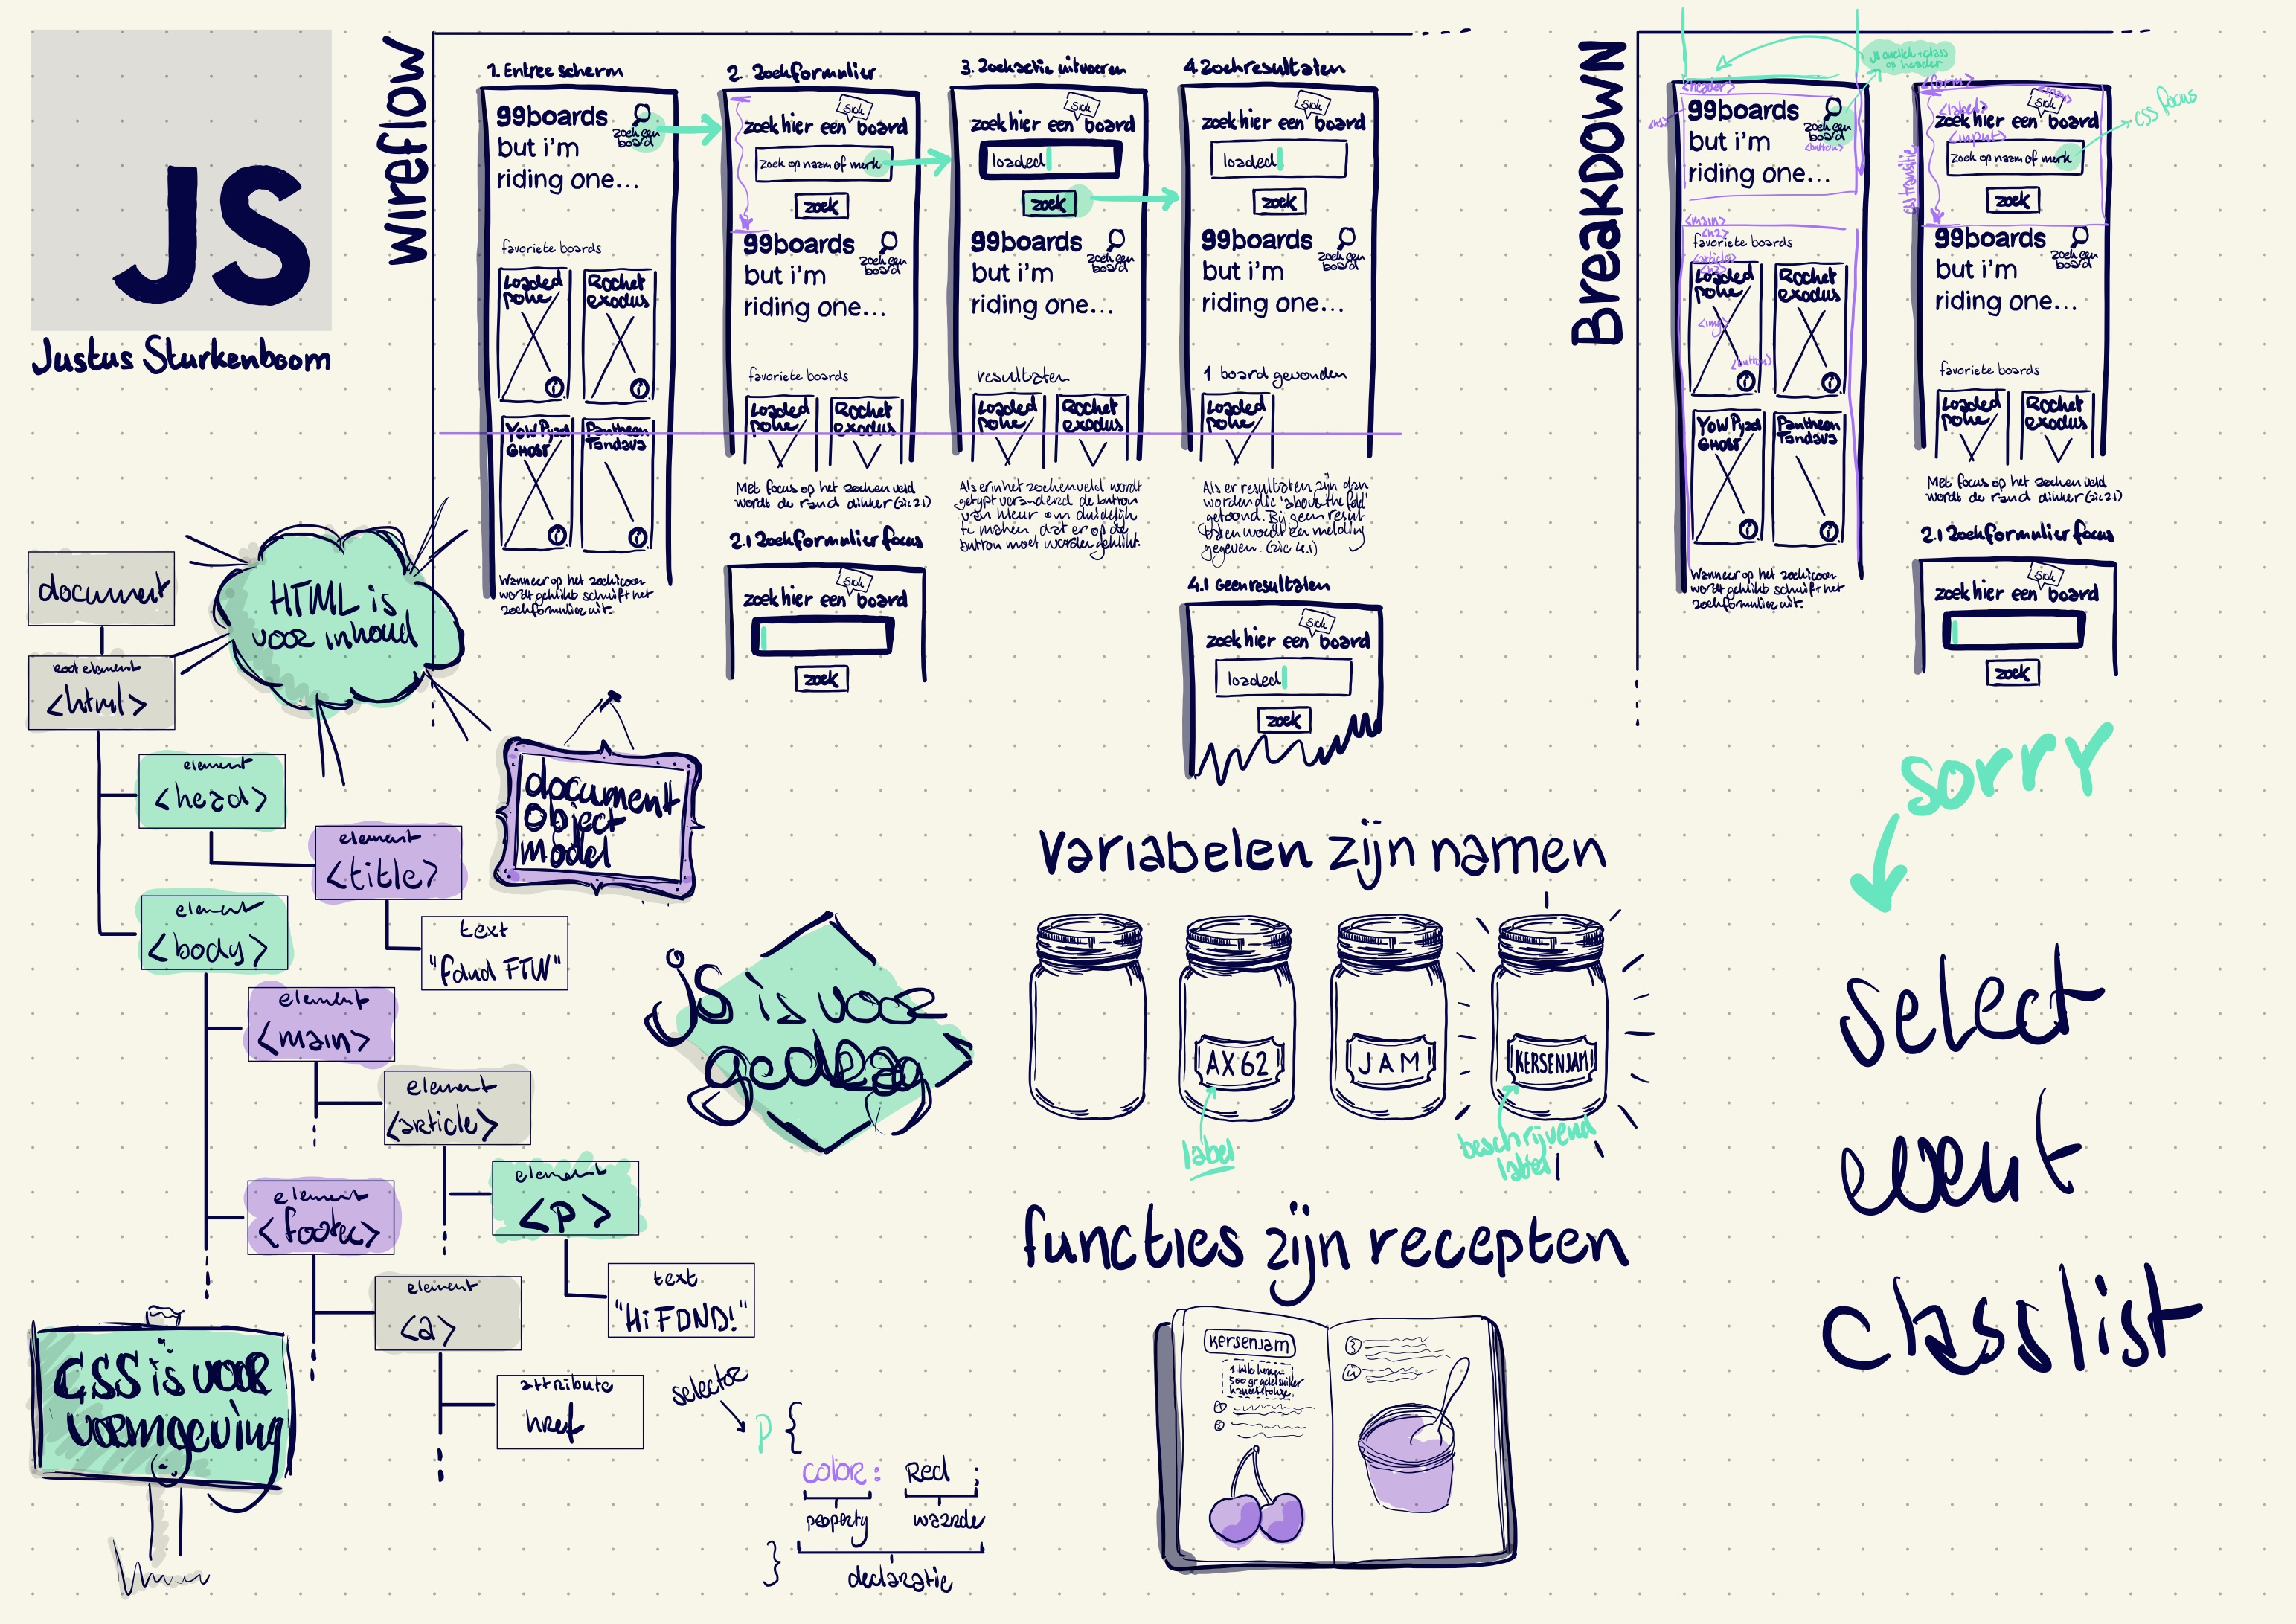 JS
Justus Sturkenboom
wireflow
1. Entree scherm
99boards
but i'm
riding one...
zoek een
board
favoriete boards
Loaded
poke
Rocket
exodus
YOW Pyzel
GHOST
Pantheon
Tandava
Wanneer op het zoekicoon
wordt geklikt schuift het
zoekformulier uit.
2. Zoekformulier
Sick
zoek hier een board
zoek op naam of merk
zoek
99boards
but i'm
riding one...
zoek een
board
favoriete boards
Loaded
poke
Rocket
exodus
Met focus op het zoeken veld
wordt de rand dikker (zie 2.1)
2.1 Zoekformulier focus
Sick
zoek hier een board
zoek
3. Zoekactie uitvoeren
Sick
zoek hier een board
loaded
zoek
99boards
but i'm
riding one...
zoek een
board
resultaten
Loaded
poke
Rocket
exodus
Als er in het zoekenveld wordt
getypt veranderd de button
van kleur om duidelijk
te maken dat er op de
button moet worden geklikt.
4. Zoekresultaten
Sick
zoek hier een board
loaded
zoek
99boards
but i'm
riding one...
zoek een
board
1 board gevonden
Loaded
poke
Als er resultaten zijn dan
worden die 'above the fold'
getoond. Bij geen resul-
taten wordt een melding
gegeven. (zie 4.1)
4.1 Geen resultaten
Sick
zoek hier een board
loaded
zoek
Breakdown
js onclick + class
op header
<header>
<h1>
99boards
but i'm
riding one...
zoek een
board
<button>
<main>
<h2>
favoriete boards
<article>
Loaded
poke
<img>
<button>
Rocket
exodus
YOW Pyzel
GHOST
Pantheon
Tandava
Wanneer op het zoekicoon
wordt geklikt schuift het
zoekformulier uit.
<form>
<label>
Sick
zoek hier een board
<input>
zoek op naam of merk
css focus
css transitie
zoek
99boards
but i'm
riding one...
zoek een
board
favoriete boards
Loaded
poke
Rocket
exodus
Met focus op het zoeken veld
wordt de rand dikker (zie 2.1)
2.1 Zoekformulier focus
Sick
zoek hier een board
zoek
document
root element
<html>
HTML is
voor inhoud
element
<head>
element
<title>
text
"fdnd FTW"
document
object
model
element
<body>
element
<main>
element
<article>
element
<p>
text
"Hi FDND!"
element
<footer>
element
<a>
attribute
href
JS is voor
gedrag
CSS is voor
vormgeving
selector
p {
color: Red ;
property
waarde
}
declaratie
Variabelen zijn namen
AX62
JAM
KERSENJAM
label
beschrijvend
label
functies zijn recepten
kersenjam
1 kilo kersen
500 gr geleisuiker
1
2
3
4
sorry
select
event
classlist